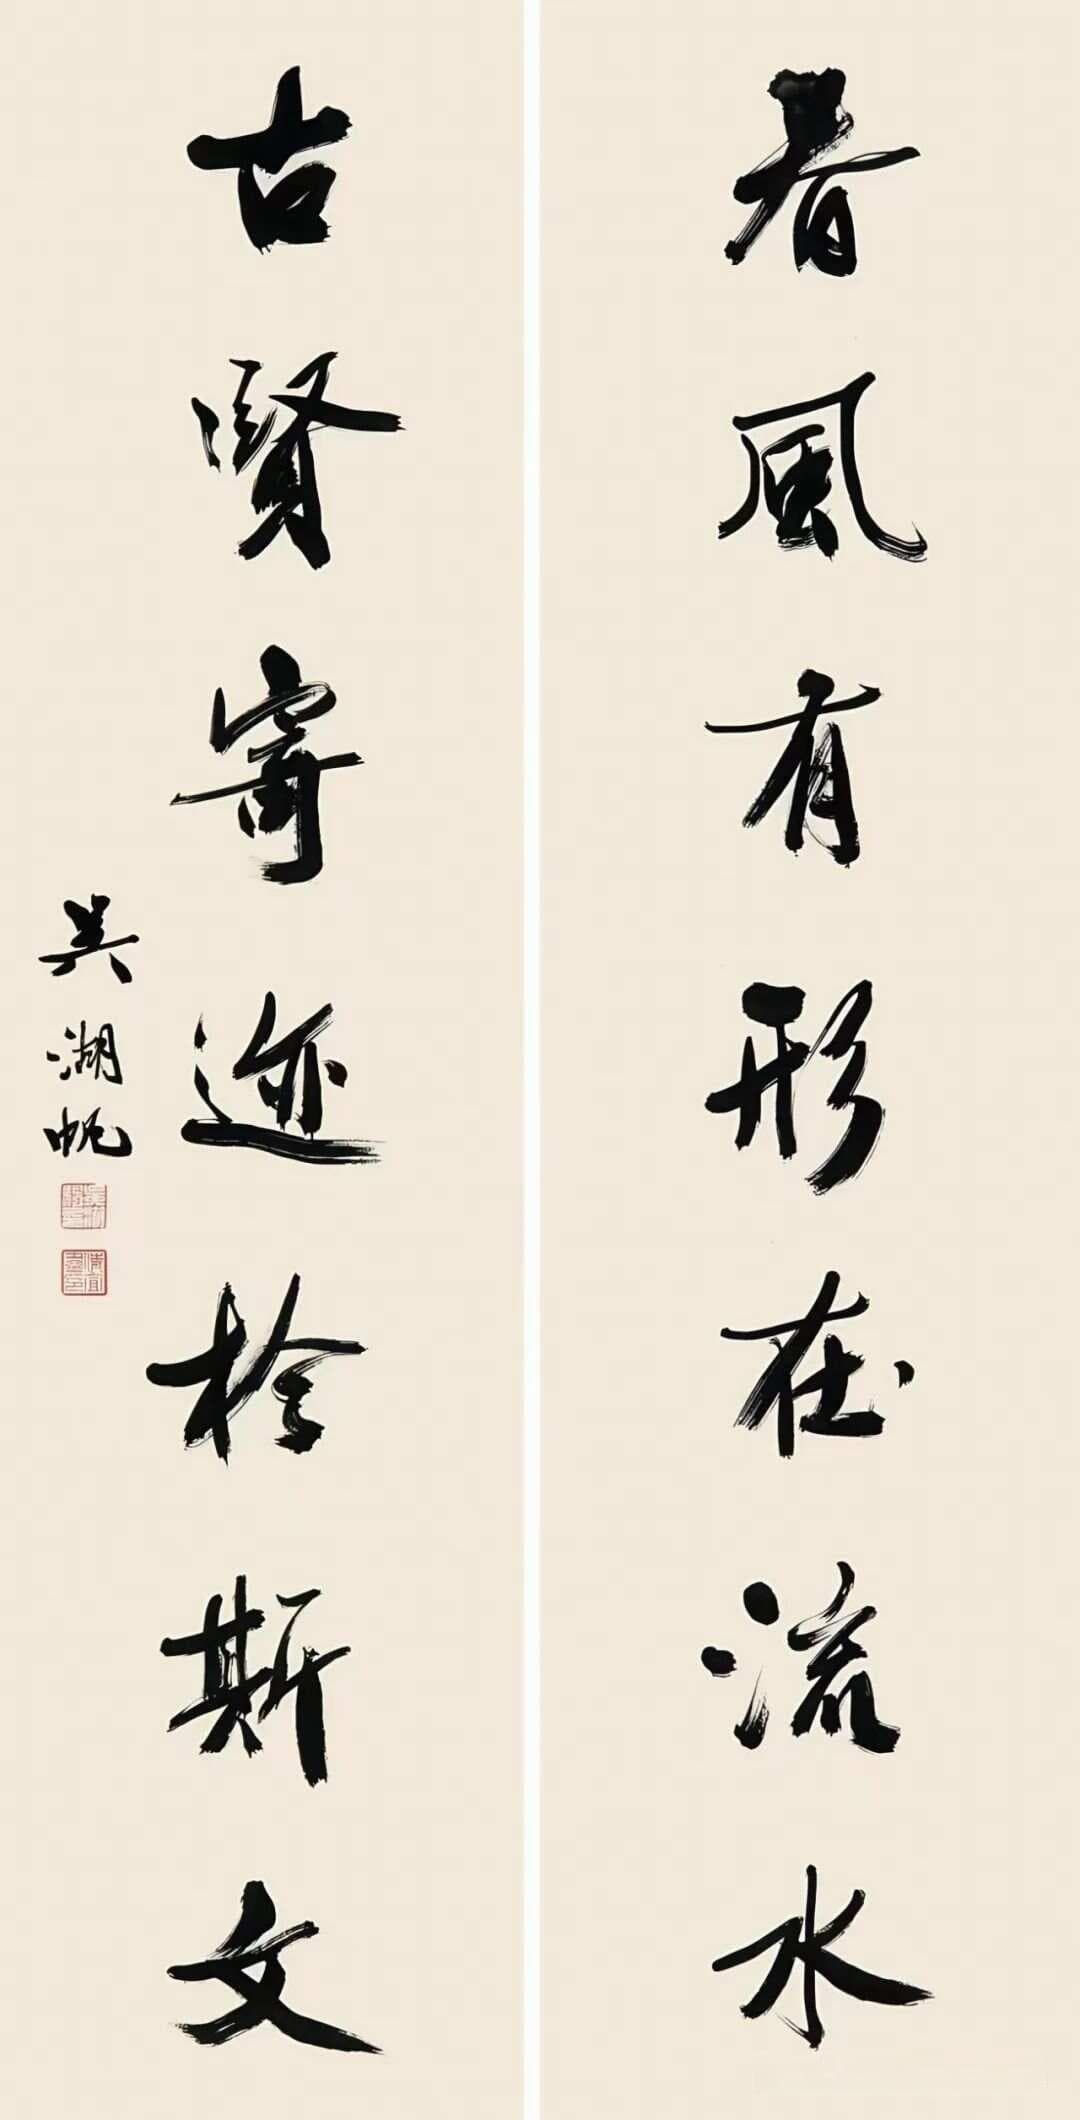 春風有形在流水
古賢寄迹於斯文
吴湖帆